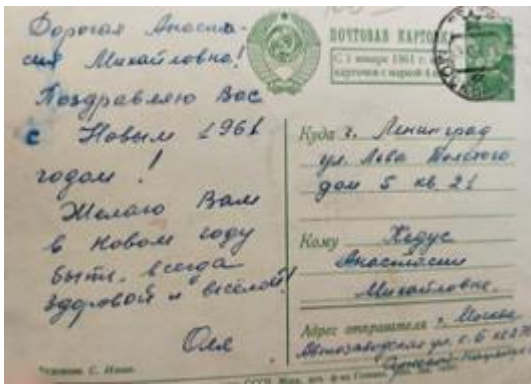 Дорогая Анаста-
сия Михайловна!
Поздравляю Вас
с Новым 1961
годом!
Желаю Вам
в Новом году
быть всегда
здоровой и весёлой!
Оля
ПОЧТОВАЯ КАРТОЧКА
С 1 января 1961 г.
карточка с маркой 4 к.
Куда г. Ленинград
ул. Льва Толстого
дом 5 кв. 21
Кому
Анастасии
Михайловне.
Адрес отправителя г. Москва
Автозаводская ул.
Художник С.
СССР